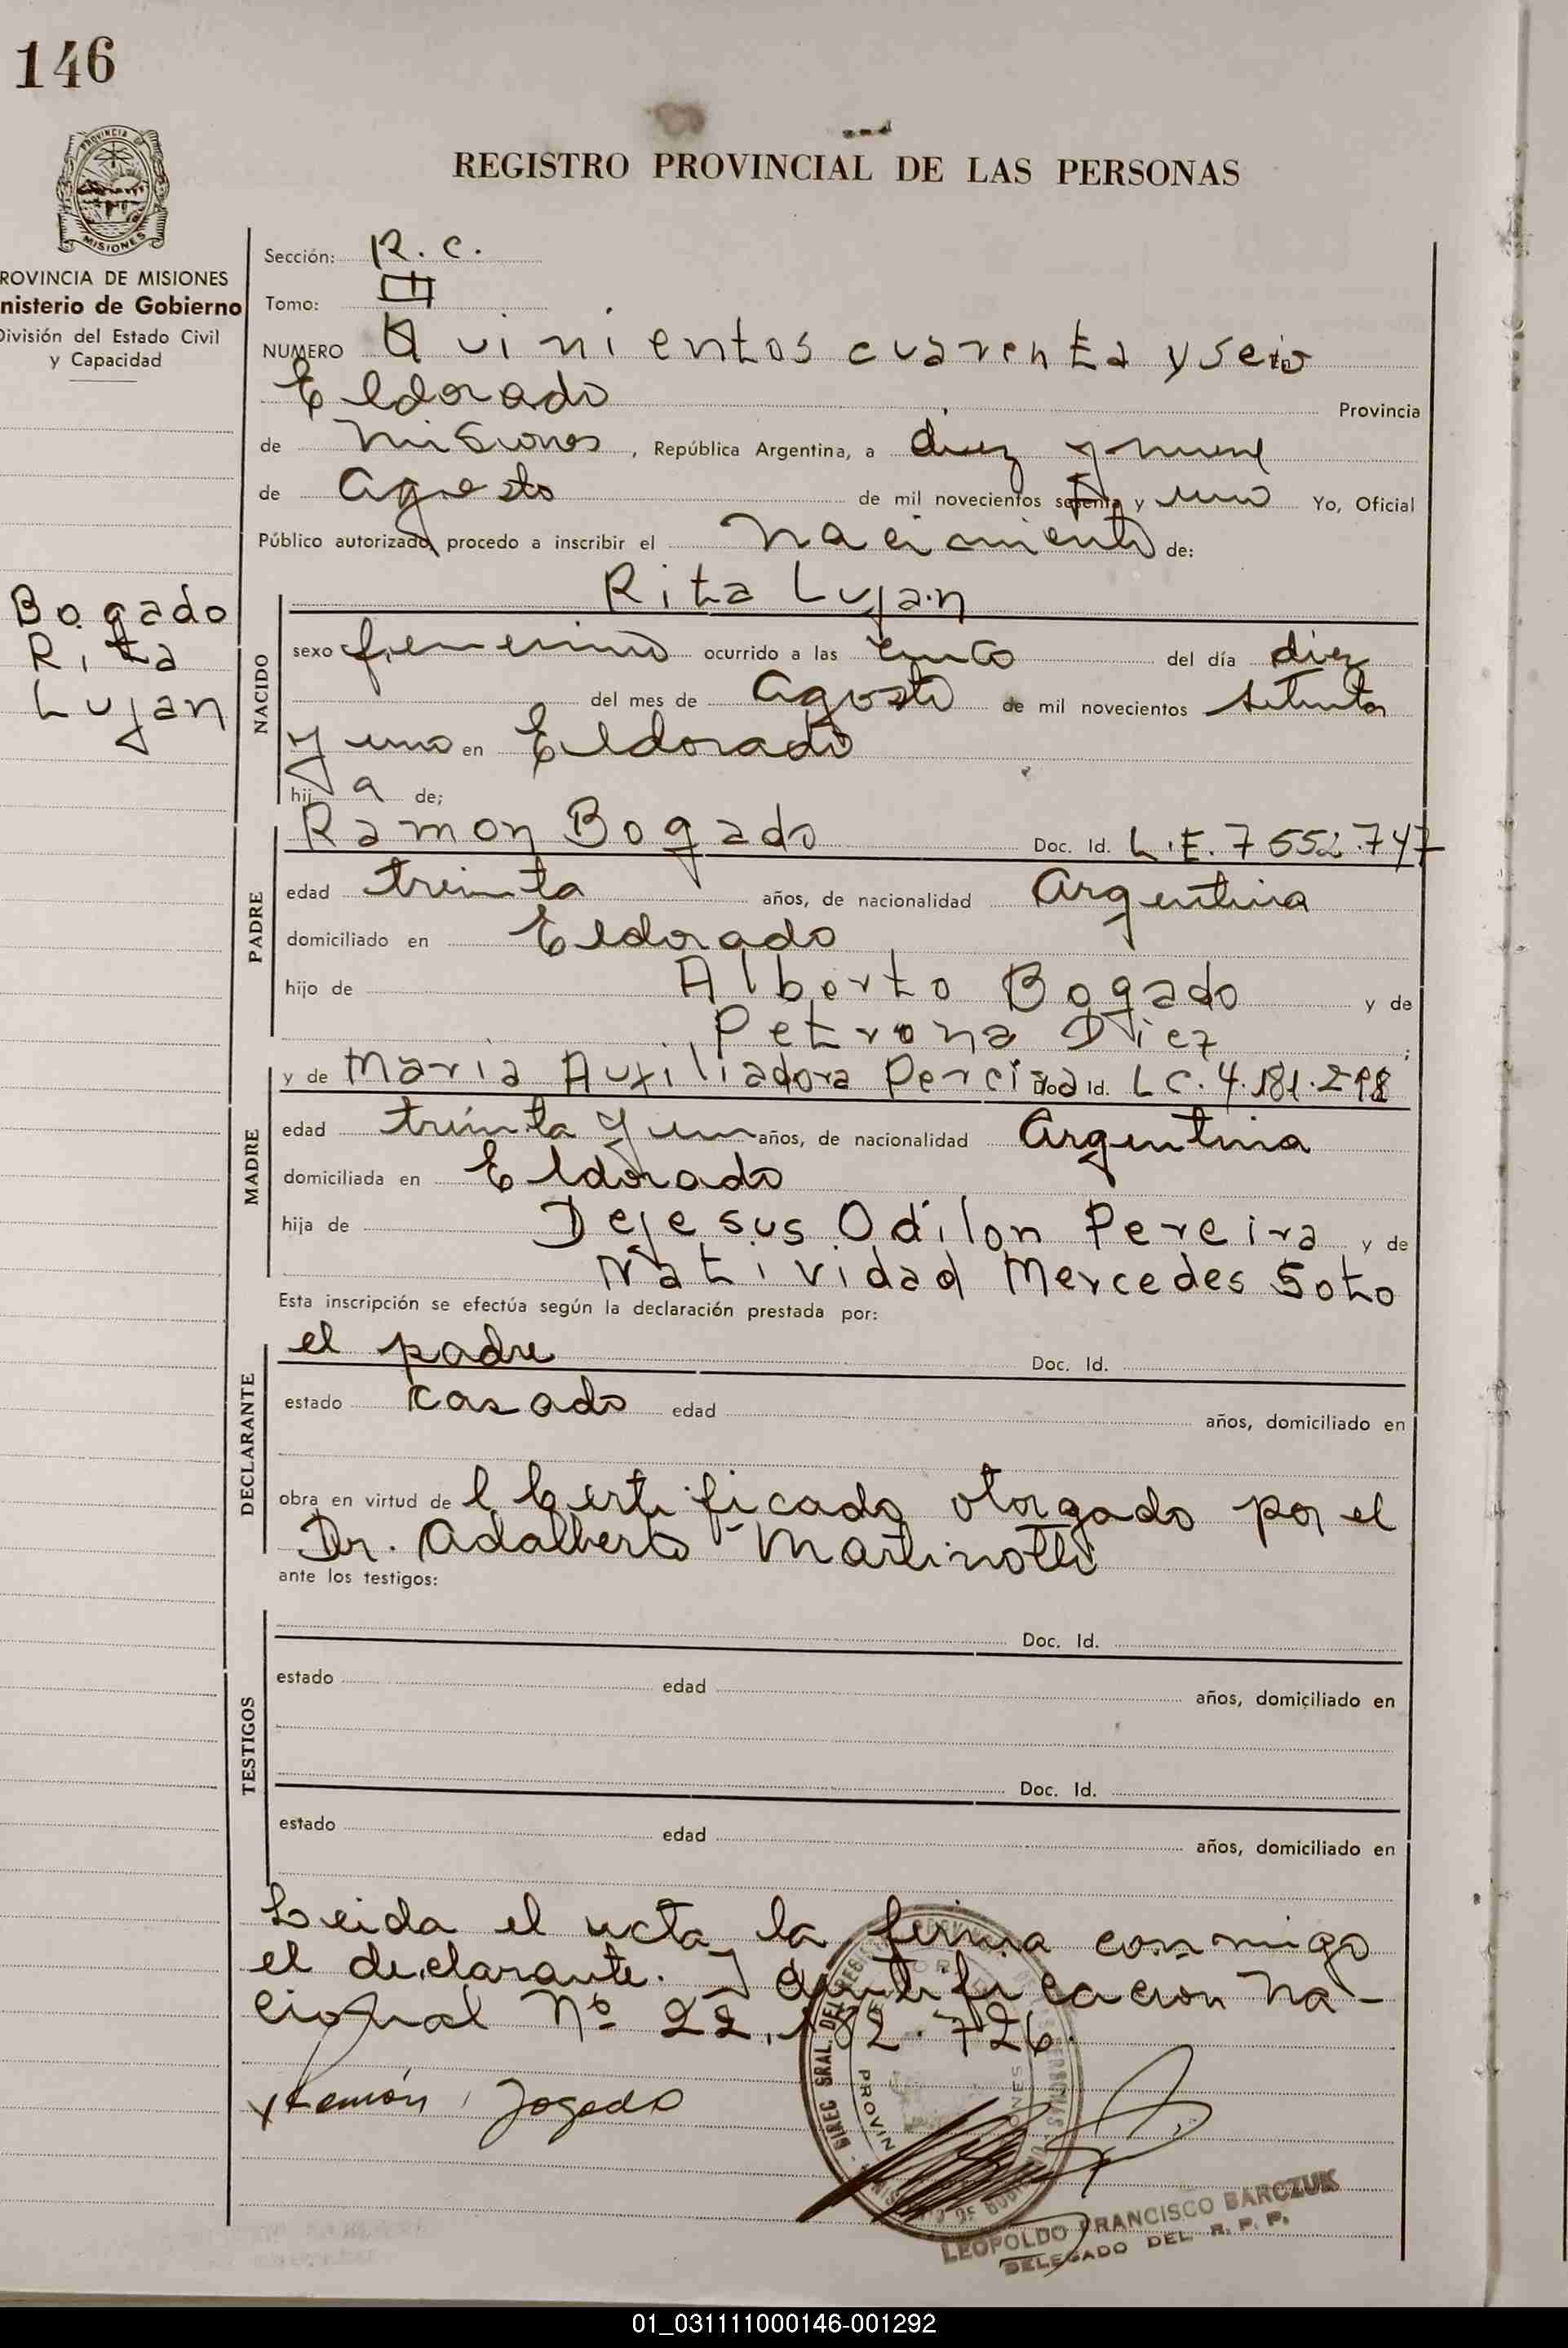 146
REGISTRO PROVINCIAL DE LAS PERSONAS
PROVINCIA DE
MISIONES
ROVINCIA DE MISIONES
nisterio de Gobierno
División del Estado Civil
y Capacidad
Sección: R. C.
Tomo: III
NUMERO Quinientos cuarenta y seis
Eldorado Provincia
de Misiones, República Argentina, a diez y nueve
de Agosto de mil novecientos setenta y uno Yo, Oficial
Público autorizado, procedo a inscribir el nacimiento de:
Bogado
Rita
Lujan
NACIDO
Rita Lujan
sexo femenino ocurrido a las cinco del día diez
del mes de Agosto de mil novecientos setenta
y uno en Eldorado
hij a de;
PADRE
Ramon Bogado Doc. Id. L.E. 7552.747
edad treinta años, de nacionalidad Argentina
domiciliado en Eldorado
hijo de Alberto Bogado y de
Petrona Diez ;
MADRE
y de Maria Auxiliadora Pereira Doc. Id. LC. 4.181.298
edad treinta y un años, de nacionalidad Argentina
domiciliada en Eldorado
hija de Dejesus Odilon Pereira y de
Natividad Mercedes Soto
Esta inscripción se efectúa según la declaración prestada por:
DECLARANTE
el padre Doc. Id.
estado casado edad años, domiciliado en
obra en virtud de l Certificado otorgado por el
Dr. Adalberto Martinotti
ante los testigos:
TESTIGOS
Doc. Id.
estado edad años, domiciliado en
Doc. Id.
estado edad años, domiciliado en
Leida el acta, la firma conmigo
el declarante. Identificación Na-
cional Nº 22.182.726.
Ramón Bogado
LEOPOLDO FRANCISCO BARCZUK
DELEGADO DEL R. P. P.
01_031111000146-001292